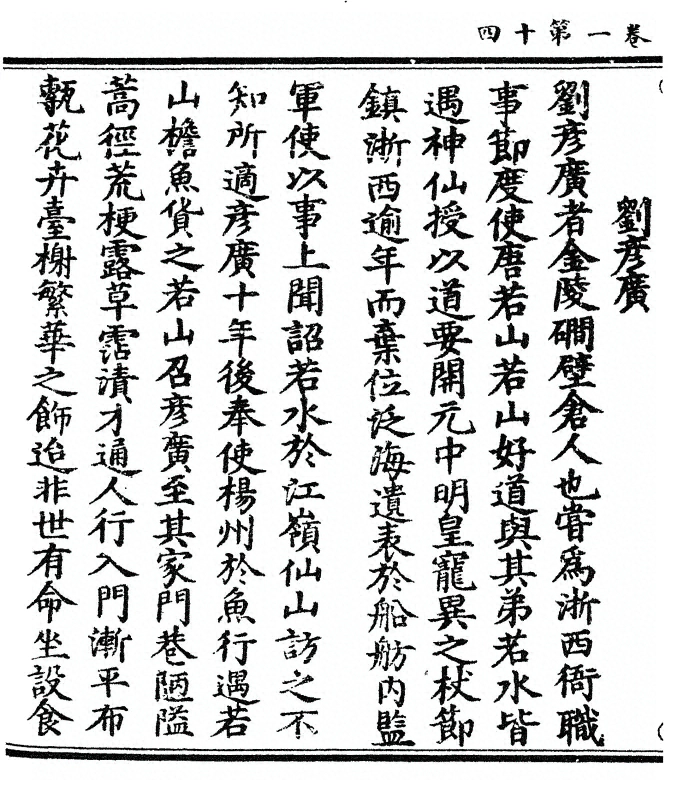 卷一第十四
劉彥廣
劉彥廣者金陵磵壁倉人也嘗爲浙西衙職
事節度使唐若山若山好道與其弟若水皆
遇神仙授以道要開元中明皇寵異之杖節
鎮浙西逾年而棄位泛海遺表於船舫內監
軍使以事上聞詔若水於江嶺仙山訪之不
知所適彥廣十年後奉使楊州於魚行遇若
山檐魚貨之若山召彥廣至其家門巷陋隘
蒿徑荒梗露草霑漬才通人行入門漸平布
甎花卉臺榭繁華之飾迨非世有命坐設食